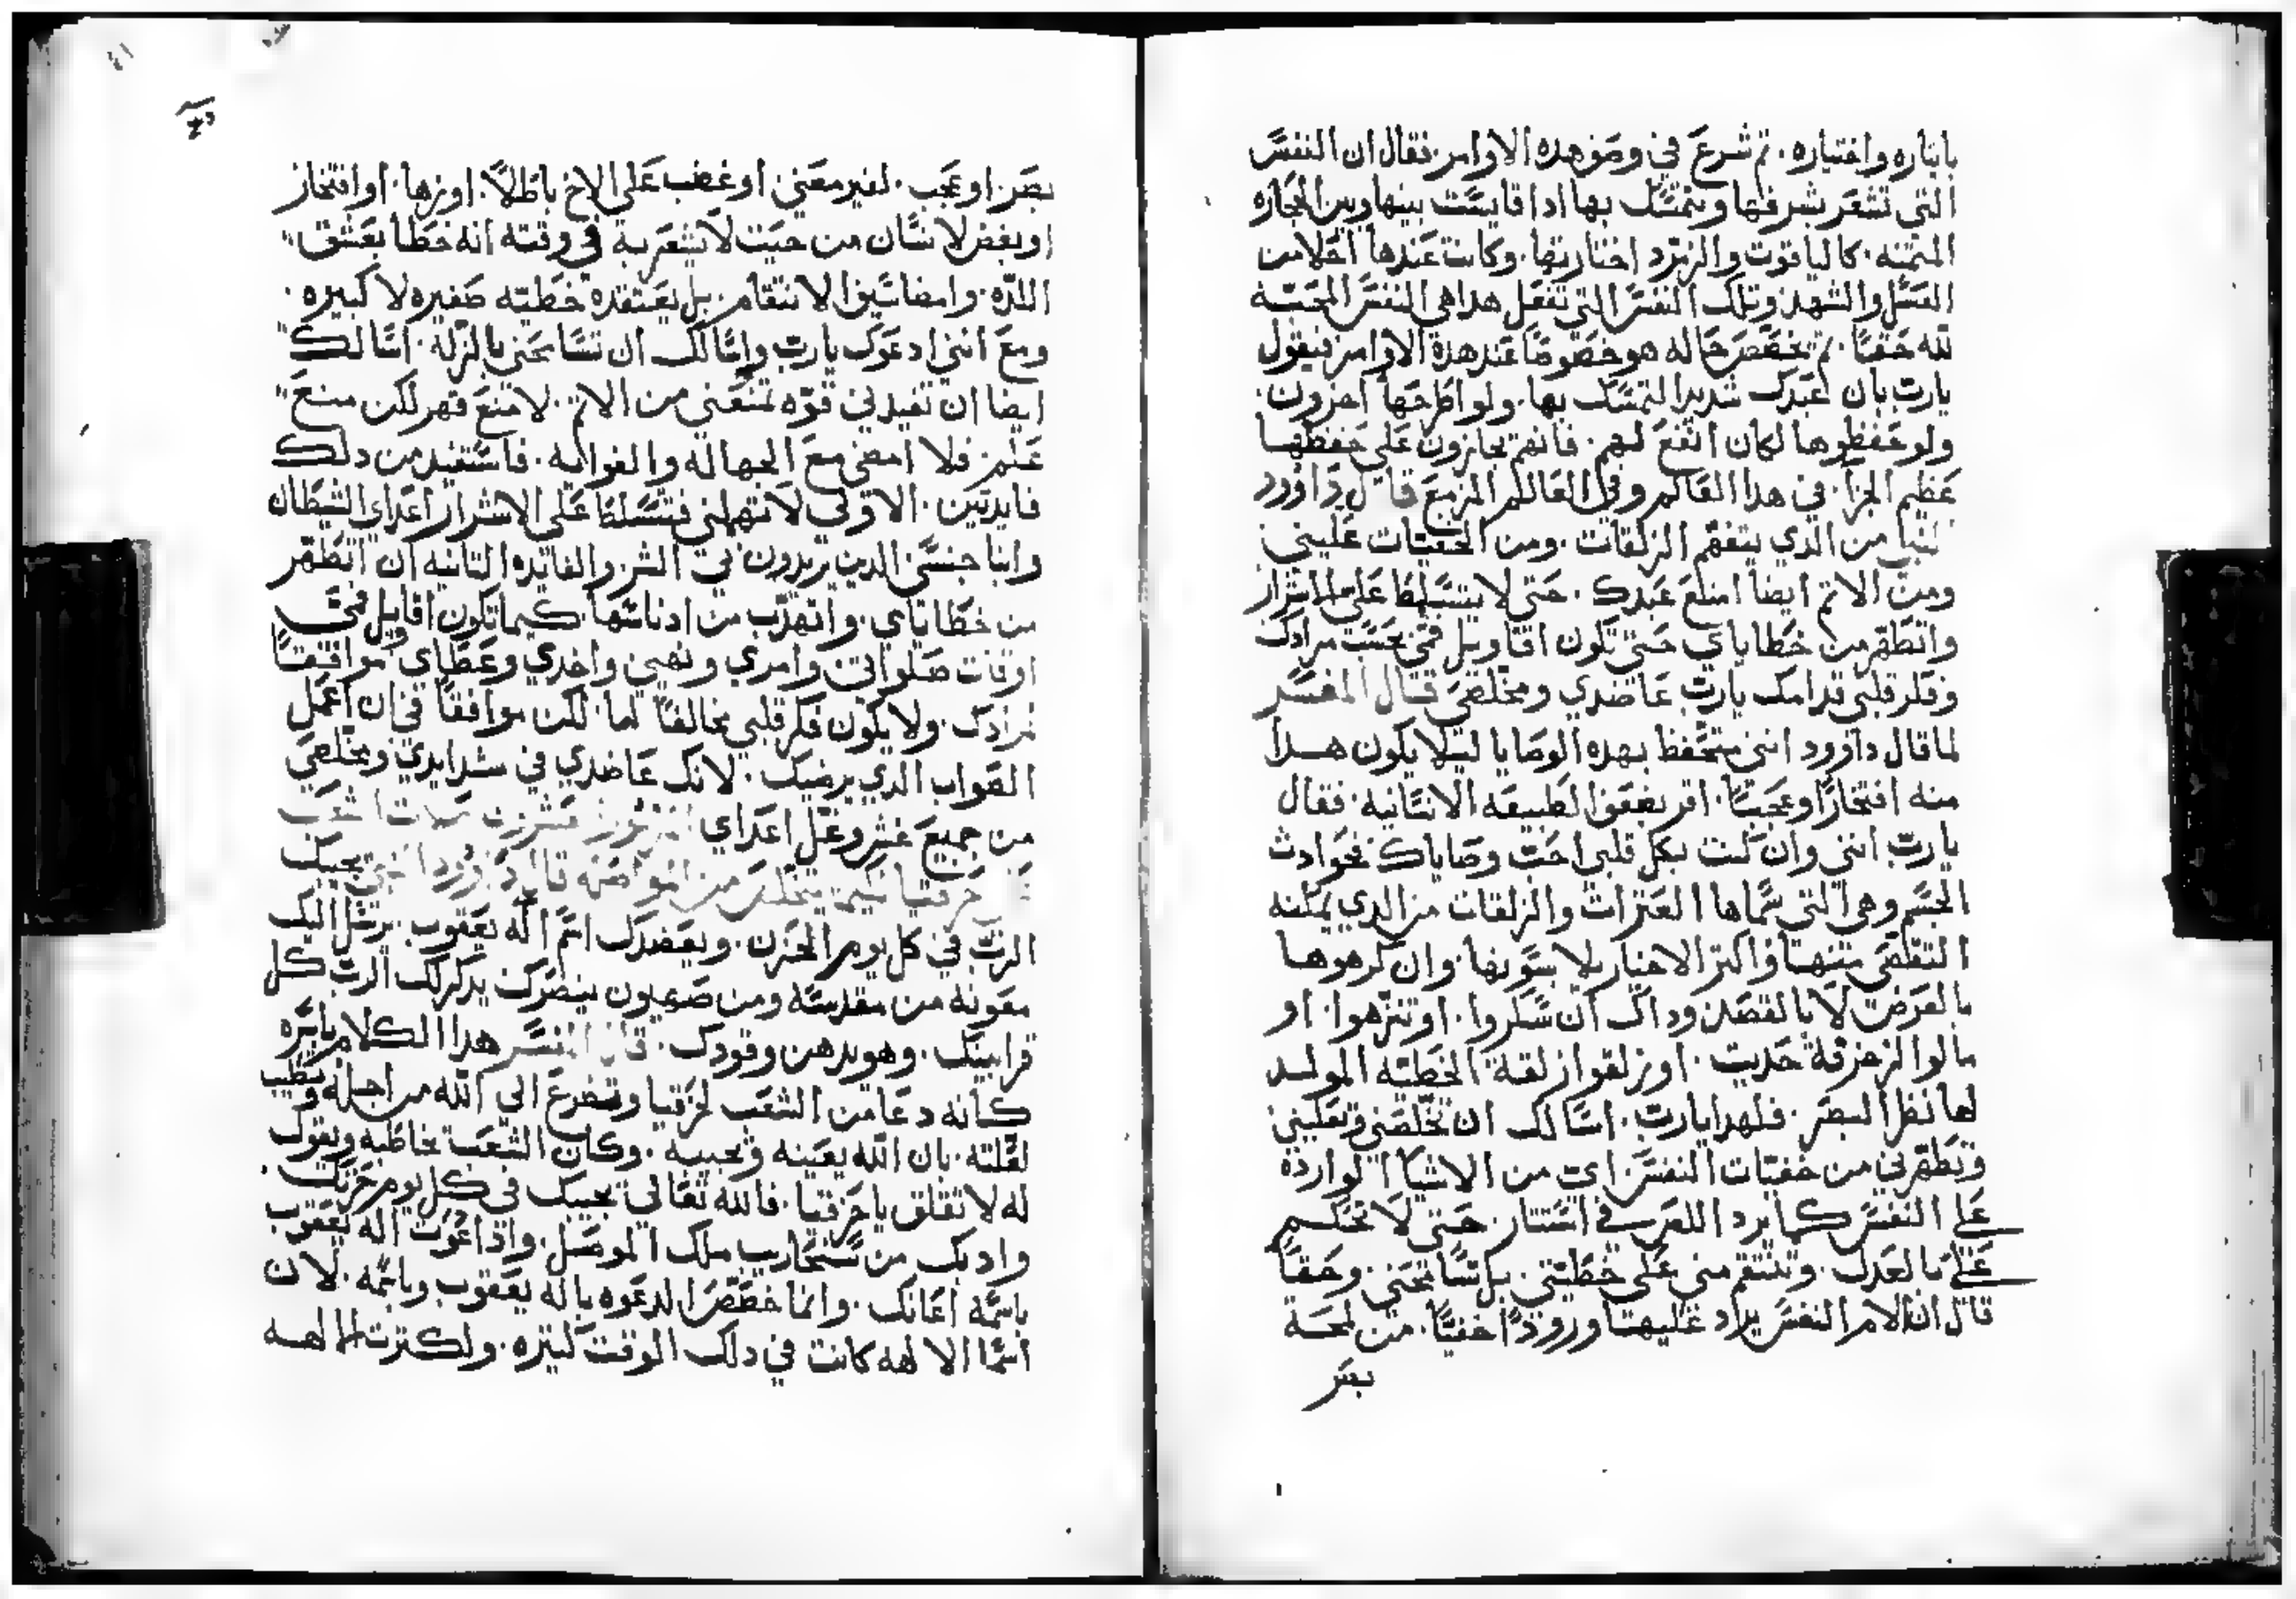 باثاره واختياره. تم شرع في وصف هده الاوامر. فقال ان النفس
التي تشعر بشرفها وتتمسك بها ادا قايست بينها وبين الحجاره
المتمنه. كالياقوت والزمرد اختارتها. وكانت عندها احلا من
العسل والشهد. وتلك النفس التي تفعل هدا هي النفس المحبة
لله حقيًا. تم تخصص حاله هو خصوصًا عند هدة الاوامر فيقول
يارب بان عبدك شديد التمسك بها. ولو اطرحها اخرون.
ولو حفظوها لكان انفع لهم. فانهم يجازون على حفظها
عظيم الجزا. في هدا العالم وفي العالم المزمع قال داوود
النبيا من الدي يتفهم الزلقات. ومن الخفيات عليني
ومن الاتم ايضا امنع عبدك. حتى لا يتسلط على الاشرار
واتطهر من خطاياي حتى تكون اقاويل فمي بحسب مرادك
وفكر قلبي قدامك يارب عاضدي ومخلصي قال المفسر
لما قال داوود انني متحفظ بهده الوصايا ليلا يكون هدا
منه افتخارًا وعجبًا. اقر بضعف الطبيعه الانسانيه. فقال
يارب انني وان كنت بكل قلبي احب وصاياك فحوادث
الجسم وهي التي سماها العترات والزلقات من الدي يمكنه
التقطي منها واكتر الاخيار بلا يسوبها. وان كرهوها
بالعرض لا بالقصد. وداك ان سكروا. او تنزهوا. او
مالوا لزخرفة حديت. او زلقوا زلقة الخطيه المولد
لها نظر البصر. فلهدا يارب. اسالك ان تخلصني وتعليني
وتطهرني من خفيات النفس. اي من الاشيا الوارده
على النفس كما يرد اللص في استتار. حتى لا تحكم
على بالعدل. وتنتقم مني على خطيتي. بل تسامحني. وحقًا
قال ان الام النفس يراد عليها ورودًا خفيًا. من لمحة
بصر
بصر. او عجب. لغير معني. او غضب على الاخ باطلًا. او زها. او افتخار
او بغض لانسان من حيت لا يشعر به في وقته انه خطا بعشق
اللده. وامضا سيف الانتقام. بل يعتقده خطيته صغيره لا كبيره.
ومع انني ادعوك يارب واسالك ان تسامحني بالزلة. اسالك
ايضا ان تفيدني قوه تمنعني من الاتم. لا منع قهر لكن منع
علم. فلا امضي مع الجهاله والغوايه. فاستفيد من دلك
فايدتين. الاولي لا تهملني فتتسلط على الاشرار اعداي الشيطان
وابنا جنسي الدين يريدون في الشر. والفايده التانيه ان اتطهر
من خطاياي. واتهدب من ادناسها. كيما تكون اقاويل فمي
اوقات صلواتي وامري ونهيي واخدي وعطاي موافقتًا
لمرادك. ولا يكون فكر قلبي مخالفًا لها. لكن موافقًا في ان اعمل
الصواب الدي يرضيك. لانك عاضدي في شدايدي ومخلصي
من جميع غش وغل اعداي
حزقيا كيما يتخلص من الموصل قال داوود النبي يجيبك
الرب في كل يوم الحزن. ويعضدك اسم اله يعقوب يرسل اليك
معونه من مقدسه ومن صهيون ينصرك يدكر لك الرب كل
قرابينك. وهو يدهن وقودك. قال المفسر هدا الكلام باسره
كانه دعا من الشعب لحزقيا وتضرع الى الله من اجله وتطيب
لقلته. بان الله يعينه ويجيبه. وكان الشعب يخاطبه ويقول
له لا تقلق يا حزقيا. فالله تعالي يجيبك في كل يوم حزنك.
واد بك من سنحاريب ملك الموصل. وادا دعوت اله يعقوب
باسمه اعانك. وانما خصص الدعوه باله يعقوب وباسمه. لان
اسما الالهه كانت في دلك الوقت كتيره. ولكترت الالهه